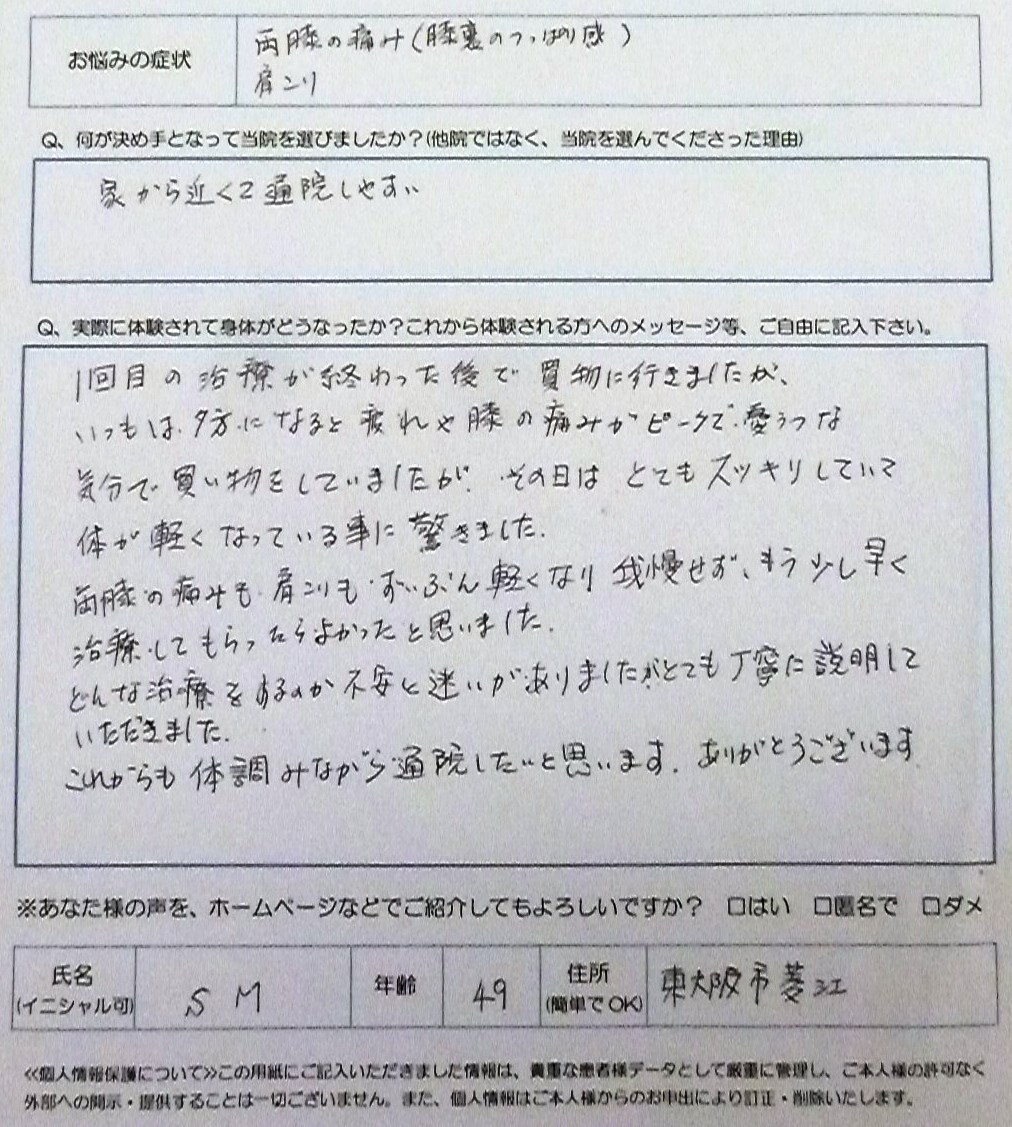 お悩みの症状
両膝の痛み(膝裏のつっぱり感)
肩こり
Q、何が決め手となって当院を選びましたか?(他院ではなく、当院を選んでくださった理由)
家から近くて通院しやすい
Q、実際に体験されて身体がどうなったか?これから体験される方へのメッセージ等、ご自由に記入下さい。
1回目の治療が終わった後で買物に行きましたが、
いつもは、夕方になると疲れや膝の痛みがピークで、憂うつな
気分で買い物をしていましたが、その日はとてもスッキリしていて
体が軽くなっている事に驚きました。
両膝の痛みも肩こりもずいぶん軽くなり我慢せず、もう少し早く
治療してもらったらよかったと思いました。
どんな治療をするのか不安と迷いがありましたがとても丁寧に説明して
いただきました。
これからも体調みながら通院したいと思います。ありがとうございます
※あなた様の声を、ホームページなどでご紹介してもよろしいですか? □はい □匿名で □ダメ
氏名
(イニシャル可)
S M
年齢
49
住所
(簡単でOK)
東大阪市菱江
≪個人情報保護について≫この用紙にご記入いただきました情報は、貴重な患者様データとして厳重に管理し、ご本人様の許可なく
外部への開示・提供することは一切ございません。また、個人情報はご本人様からのお申出により訂正・削除いたします。